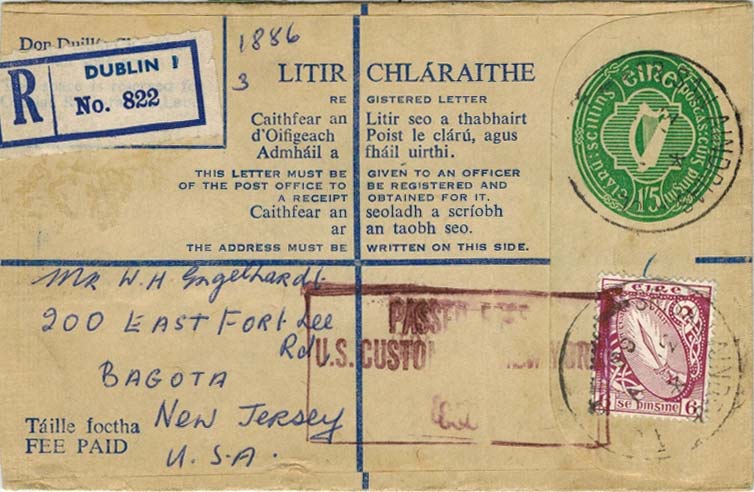 1886
3
R
DUBLIN 1
No. 822
LITIR CHLÁRAITHE
REGISTERED LETTER
Caithfear an Litir seo a thabhairt
d'Oifigeach Poist le clárú, agus
Admháil a fháil uirthi.
THIS LETTER MUST BE GIVEN TO AN OFFICER
OF THE POST OFFICE TO BE REGISTERED AND
A RECEIPT OBTAINED FOR IT.
Caithfear an seoladh a scríobh
ar an taobh seo.
THE ADDRESS MUST BE WRITTEN ON THIS SIDE.
éire
1/5
Mr W.H. Engelhardt
200 East Fort Lee
Rd,
BAGOTA
New Jersey
U.S.A.
Táille íoctha
FEE PAID
PASSED FREE
U.S. CUSTOMS NEW YORK
EIRE
6 SÉ PINGINE 6